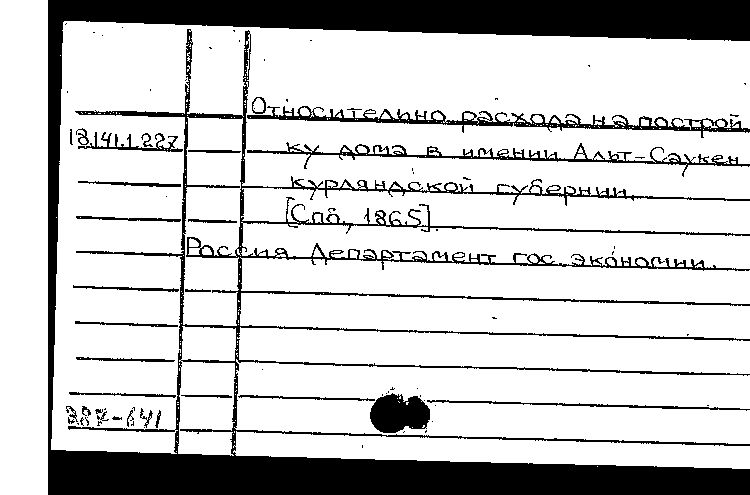 Относительно расхода на построй
18.141.1.227
ку дома в имении Альт-Саукен
курляндской губернии.
[Спб., 1865].
Россия. Департамент гос. экономии.
287-641